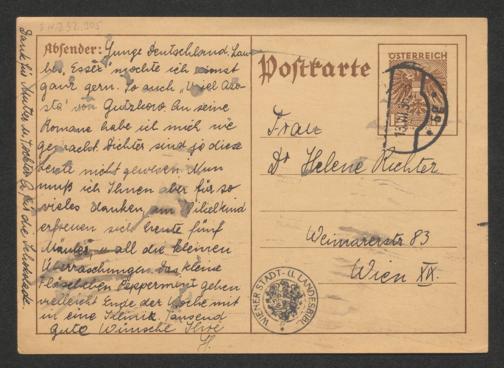 I.N. 232.205
Absender: Junge Deutschland. Lau-
bes, Esser möchte ich einst
ganz gern. So auch „Uriel Aco-
sta" von Gutzkow. An seine
Romane habe ich mich nie
gewagt. Dichter sind ja diese
beide nicht gewesen. Nun
muß ich Ihnen aber für so
vieles danken, am
erfreuen sich heute fünf
Mäuler u all die kleinen
Überraschungen. Das kleine
Fläschchen Pepperment gehen
vielleicht Ende der Woche mit
in eine Klinik. Tausend
gute Wünsche Ihre
H.
Dank für Mutter u.
Postkarte
ÖSTERREICH
Frau
Dr Helene Richter
Weimarerstr 83
Wien XIX.
WIENER STADT- U. LANDESBIBL.